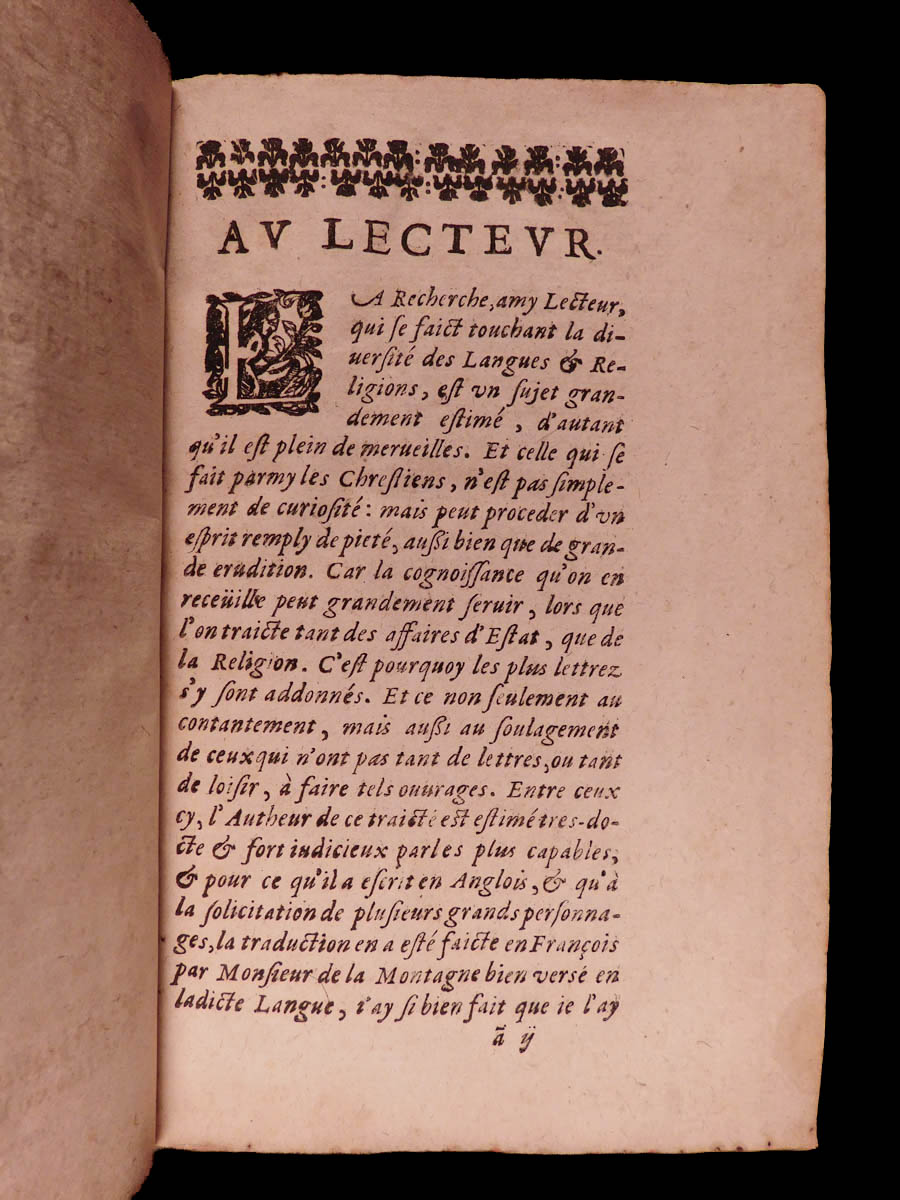 AV LECTEVR.
LA Recherche, amy Lecteur,
qui se faict touchant la di-
uersité des Langues & Re-
ligions, est vn sujet gran-
dement estimé, d'autant
qu'il est plein de merueilles. Et celle qui se
fait parmy les Chrestiens, n'est pas simple-
ment de curiosité: mais peut proceder d'vn
esprit remply de pieté, aussi bien que de gran-
de erudition. Car la cognoissance qu'on en
receüille peut grandement seruir, lors que
l'on traicte tant des affaires d'Estat, que de
la Religion. C'est pourquoy les plus lettrez
s'y sont addonnés. Et ce non seulement au
contantement, mais aussi au soulagement
de ceux qui n'ont pas tant de lettres, ou tant
de loisir, à faire tels ouurages. Entre ceux
cy, l'Autheur de ce traicté est estimé tres-do-
cte & fort iudicieux par les plus capables;
& pour ce qu'il a escrit en Anglois, & qu'à
la solicitation de plusieurs grands personna-
ges, la traduction en a esté faicte en François
par Monsieur de la Montagne bien versé en
ladicte Langue, i'ay si bien fait que ie l'ay
ã ij